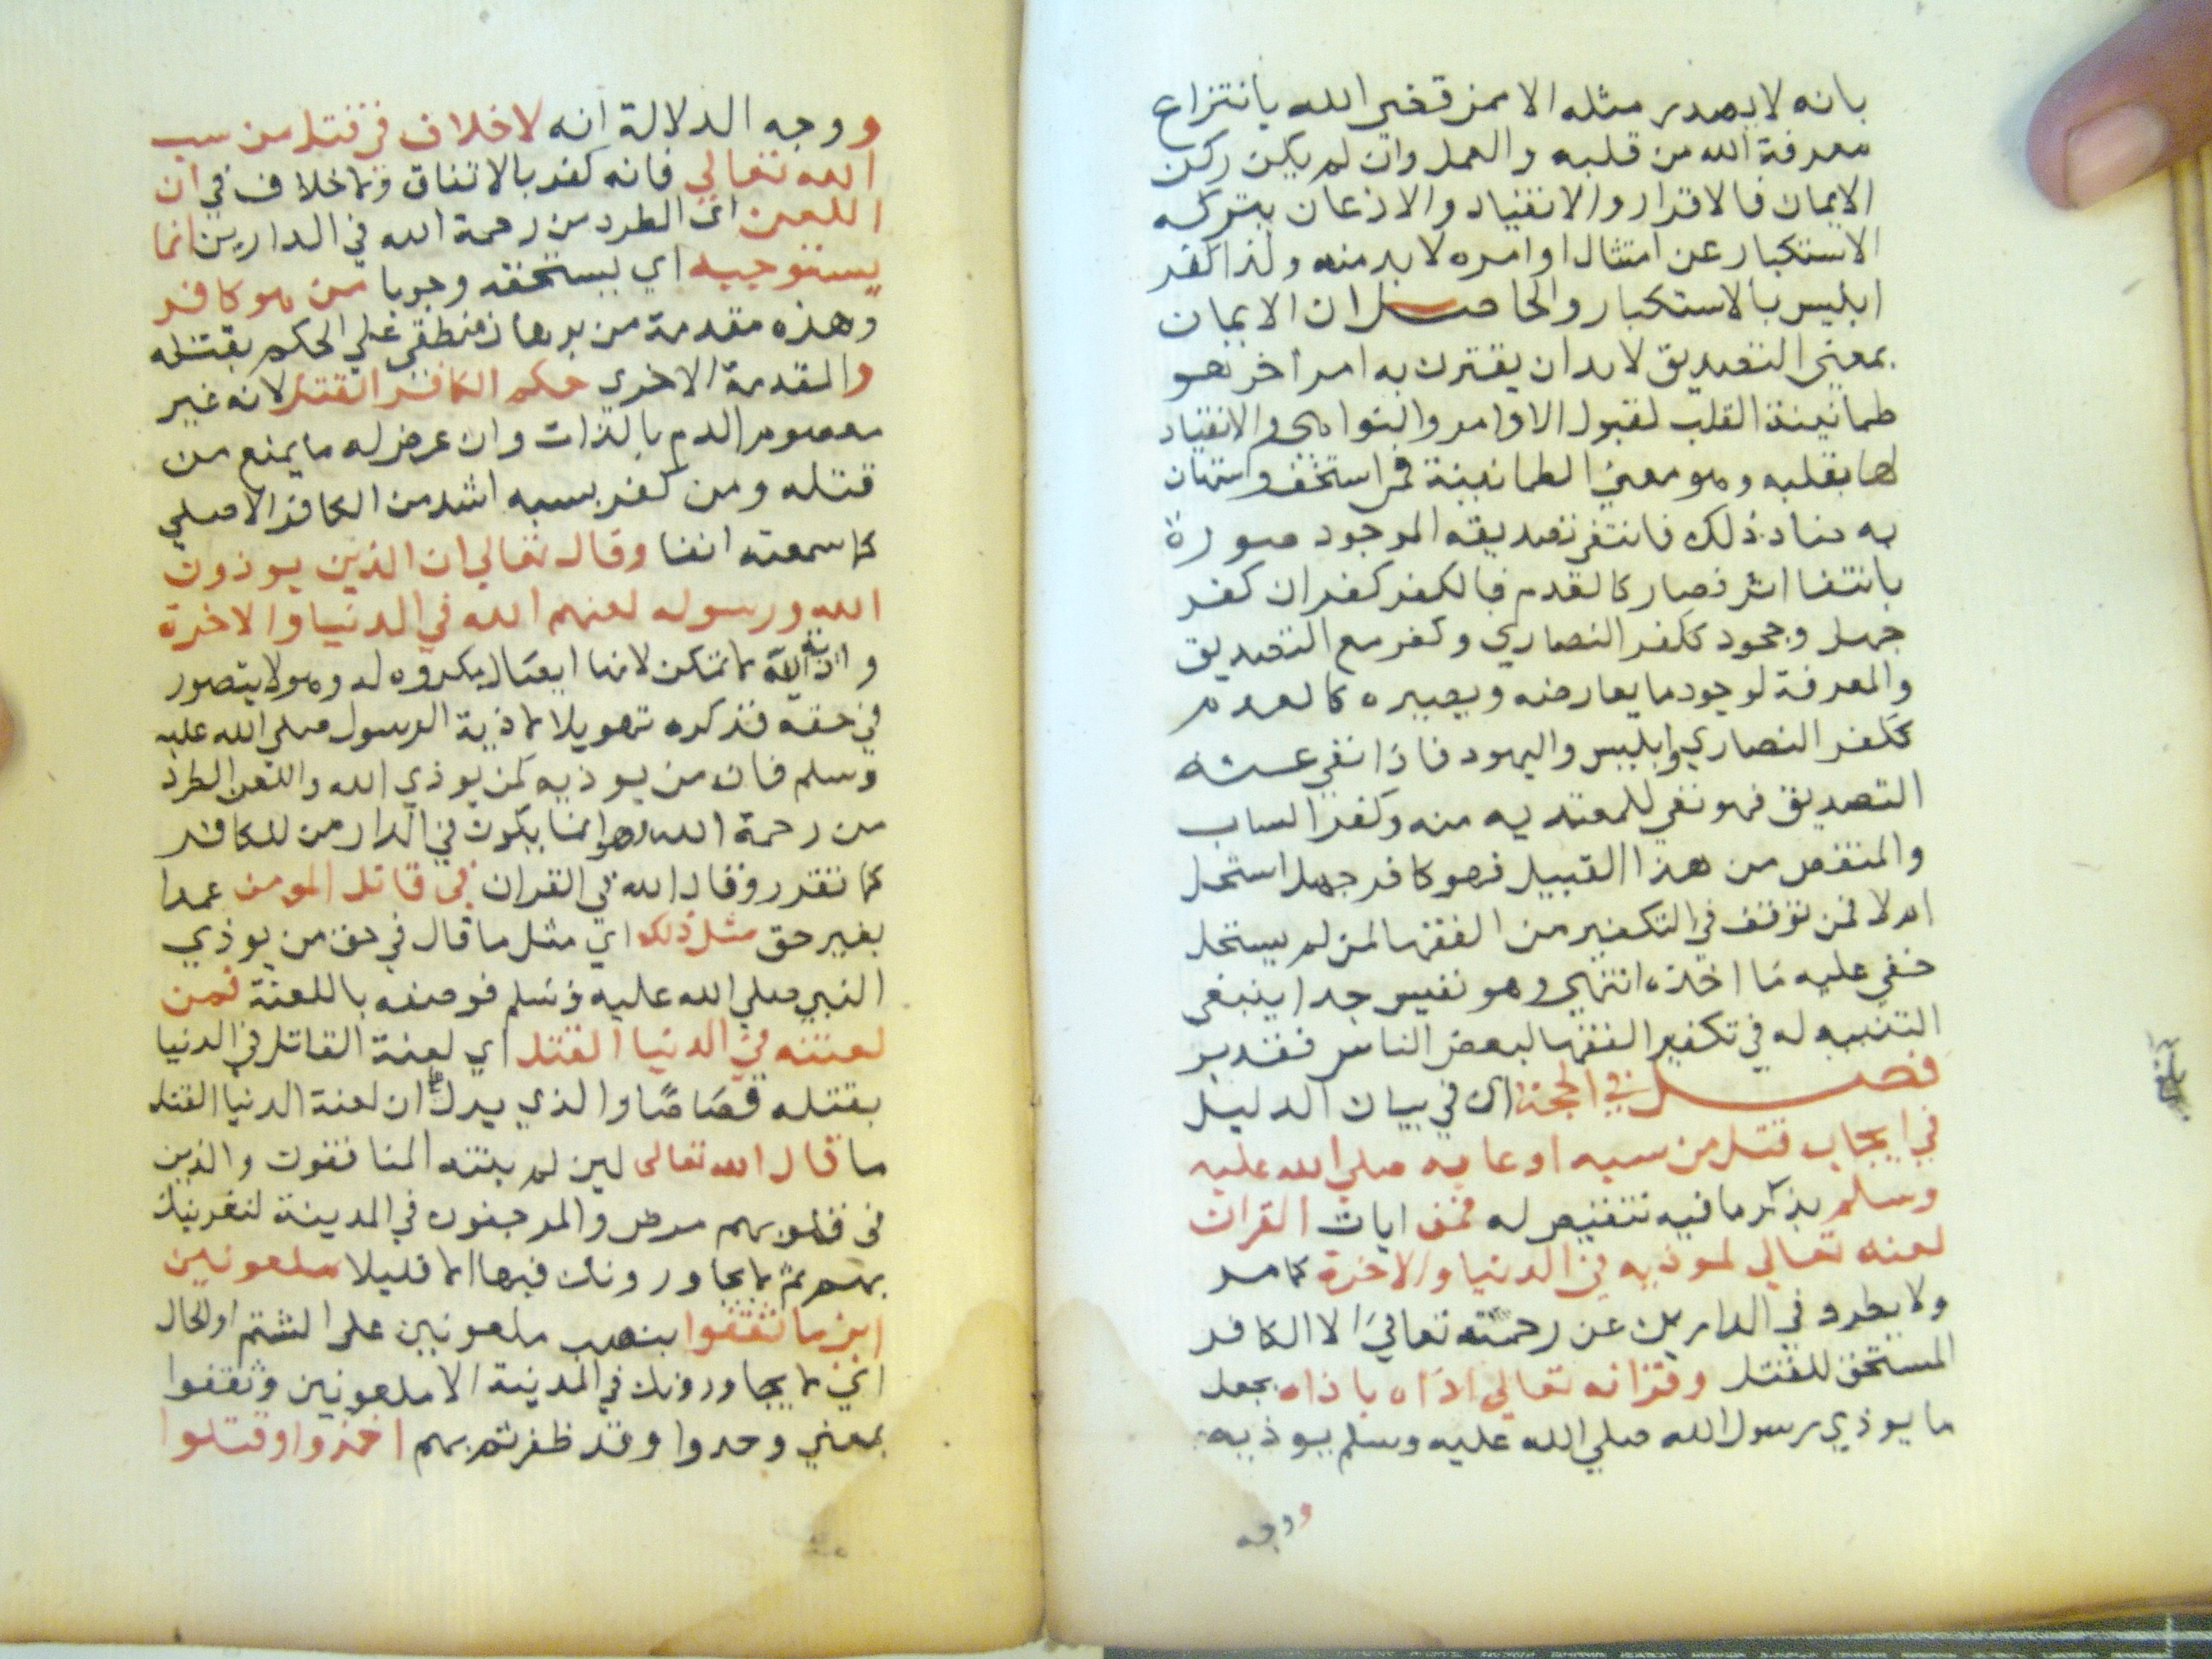 بانه لا يصدر مثله الا ممن قضي الله بانتزاع
معرفة الله من قلبه والعمل وان لم يكن ركن
الايمان فالاقرار والانقياد والاذعان بتركه
الاستكبار عن امتثال اوامره لا بد منه ولذا كفر
ابليس بالاستكبار والحاصل ان الايمان
بمعني التصديق لا بد ان يقترن به امر اخر هو
طمانينة القلب لقبول الاوامر والنواهي والانقياد
لها بقلبه وهو معني الطمانينة فمن استخف واستهان
به ضاد ذلك فانتفي تصديقه الموجود صورة
بانتفا اثر فصار كالعدم فالكفر كفران كفر
جهل وجحود ككفر النصاري وكفر مع التصديق
والمعرفة لوجود ما يعارضه ويصيره كالعدم
ككفر النصاري وابليس واليهود فاذا نفي عنه
التصديق فهو نفي للمعتد به منه وكفر الساب
والمنقص من هذا القبيل فهو كافر جهل استحل
ام لا فمن توقف في التكفير من الفقها لمن لم يستحل
خفي عليه ما اخذه انتهي وهو نفيس جدا ينبغي
التنبيه له في تكفير الفقها لبعض الناس فتدبر
فصل في الحجة اي في بيان الدليل
في ايجاب قتل من سبه او عابه صلي الله عليه
وسلم بذكر ما فيه تنقيص له فمن ايات القران
لعنه تعالي لموذيه في الدنيا والاخرة كما مر
ولا يطرد في الدارين عن رحمته تعالي الا الكافر
المستحق للقتل وقرانه تعالي اذاه باذاه بجعل
ما يوذي رسول الله صلي الله عليه وسلم يوذيه
ووجه
ووجه الدلالة انه لا خلاف في قتل من سب
الله تعالي فانه كفر بالاتفاق ولا خلاف في ان
اللعن اي الطرد من رحمة الله في الدارين انما
يستوجبه اي يستحقه وجوبا من هو كافر
وهذه مقدمة من برهان منطقي علي الحكم بقتله
والمقدمة الاخري حكم الكافر القتل لانه غير
معصوم الدم بالذات وان عرض له ما يمنع من
قتله ومن كفر بسبه اشد من الكافر الاصلي
كما سمعته انفا وقال تعالي ان الذين يوذون
الله ورسوله لعنهم الله في الدنيا والاخرة
واذية الله لا تمكن لانها ايصال مكروه له وهو لا يتصور
في حقه فذكره تهويلا لاذية الرسول صلي الله عليه
وسلم فان من يوذيه كمن يوذي الله واللعن الطرد
من رحمة الله وهو انما يكون في الدارين للكافر
كما تقرر وقال الله في القران في قاتل المومن عمدا
بغير حق مثل ذلك اي مثل ما قال في حق من يوذي
النبي صلي الله عليه وسلم فوصفه باللعنة فمن
لعنته في الدنيا القتل اي لعنة القاتل في الدنيا
بقتله قصاصا والذي يدل علي ان لعنة الدنيا القتل
ما قال الله تعالي لين لم ينته المنافقون والذين
في قلوبهم مرض والمرجفون في المدينة لنغرينك
بهم ثم لا يجاورونك فيها الا قليلا ملعونين
اين ما ثقفوا بنصب ملعونين علي الشتم او الحال
اي لا يجاورونك في المدينة الا ملعونين وثقفوا
بمعني وجدوا وقد ظفر بهم اخذوا وقتلوا